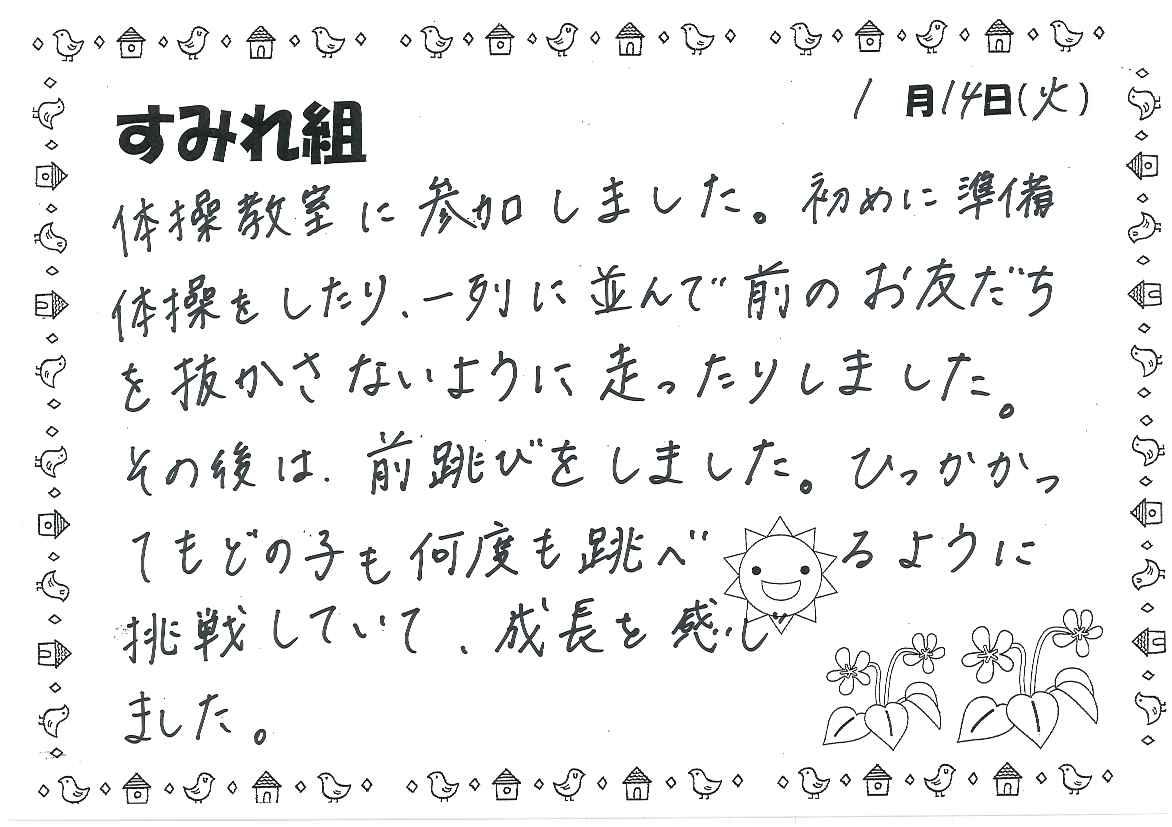 1月14日(火)
すみれ組
体操教室に参加しました。初めに準備
体操をしたり、一列に並んで前のお友だち
を抜かさないように走ったりしました。
その後は、前跳びをしました。ひっかかっ
てもどの子も何度も跳べるように
挑戦していて、成長を感じ
ました。